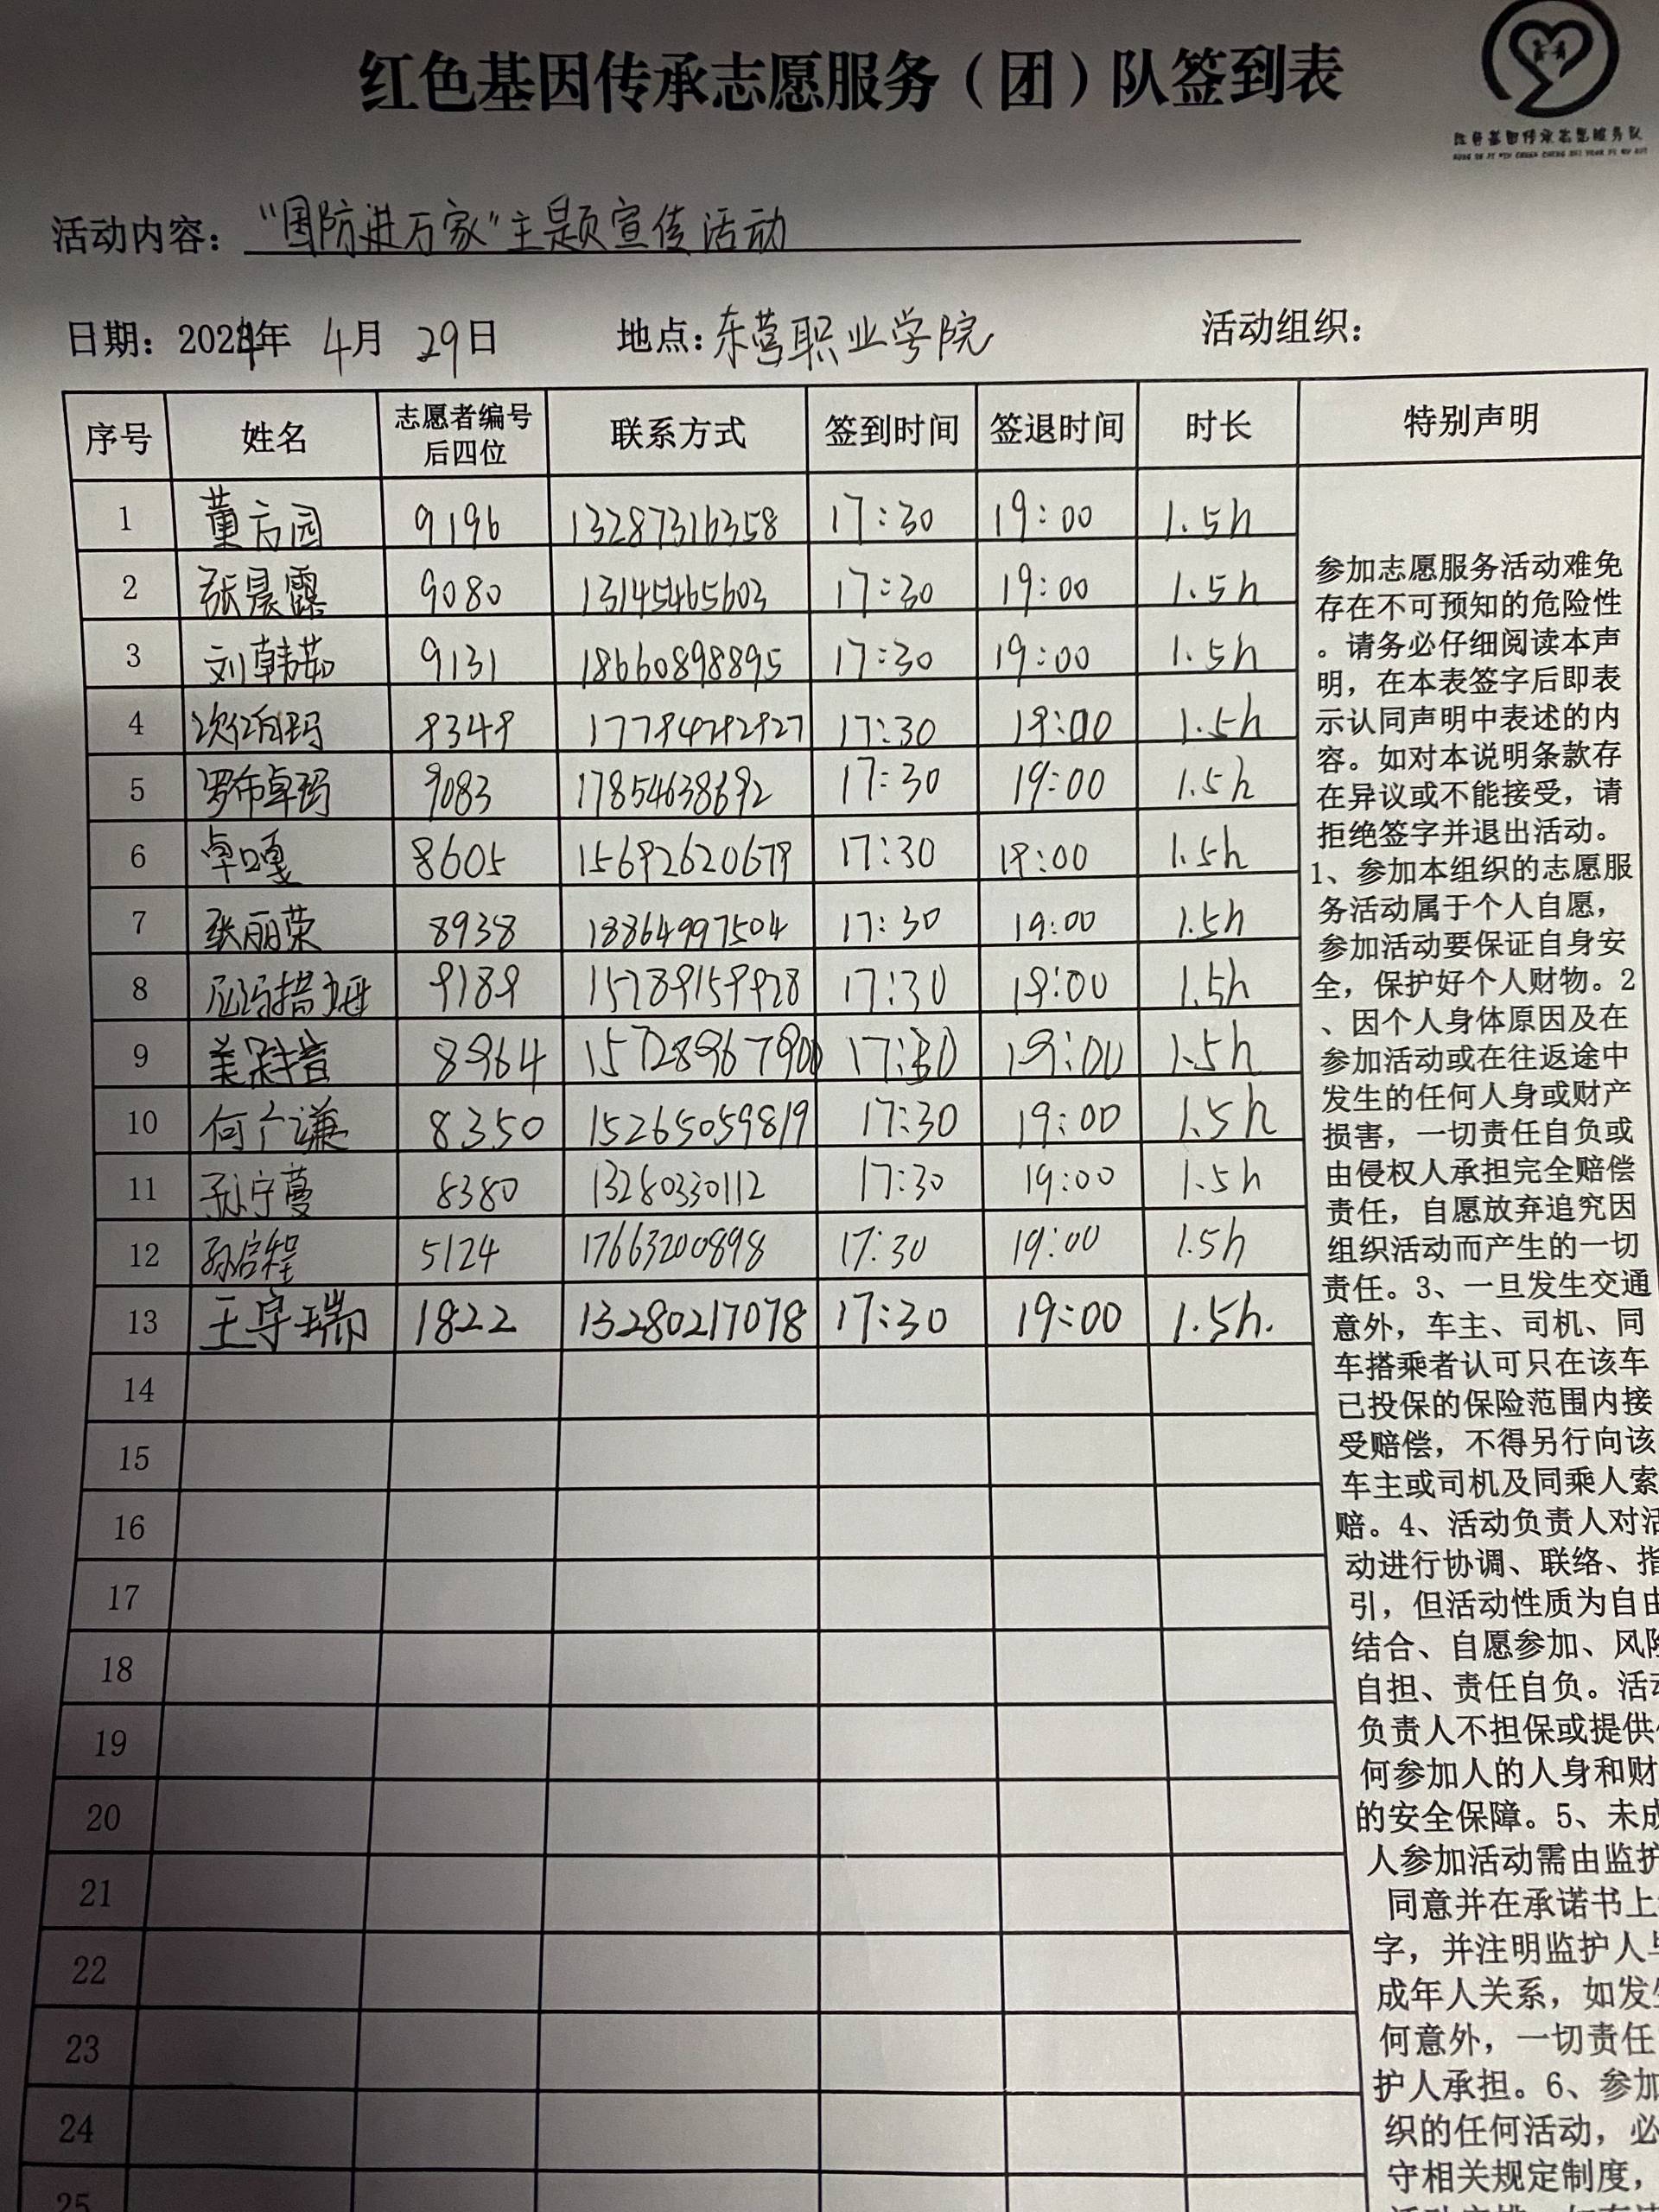 红色基因传承志愿服务（团）队签到表
红色基因传承志愿服务队
活动内容：“国防进万家”主题宣传活动
日期：2024年 4月 29日 地点：东营职业学院 活动组织：
序号 姓名 志愿者编号后四位 联系方式 签到时间 签退时间 时长 特别声明
1 董方园 9196 13287316358 17:30 19:00 1.5h
2 张晨露 9080 13145465603 17:30 19:00 1.5h
3 刘韩茹 9131 18660898895 17:30 19:00 1.5h
4 17:30 19:00 1.5h
5 罗布卓玛 9083 17854638692 17:30 19:00 1.5h
6 卓嘎 8605 15692620679 17:30 19:00 1.5h
7 张丽荣 8938 18864997504 17:30 19:00 1.5h
8 9189 15789159928 17:30 19:00 1.5h
9 8964 17:30 19:00 1.5h
10 何广谦 8350 15265059819 17:30 19:00 1.5h
11 孙宁蔓 8380 13280330112 17:30 19:00 1.5h
12 孙启程 5124 17663200898 17:30 19:00 1.5h
13 王宇瑞 1822 13280217078 17:30 19:00 1.5h.
14
15
16
17
18
19
20
21
22
23
24
25
参加志愿服务活动难免
存在不可预知的危险性
。请务必仔细阅读本声
明，在本表签字后即表
示认同声明中表述的内
容。如对本说明条款存
在异议或不能接受，请
拒绝签字并退出活动。
1、参加本组织的志愿服
务活动属于个人自愿，
参加活动要保证自身安
全，保护好个人财物。2
、因个人身体原因及在
参加活动或在往返途中
发生的任何人身或财产
损害，一切责任自负或
由侵权人承担完全赔偿
责任，自愿放弃追究因
组织活动而产生的一切
责任。3、一旦发生交通
意外，车主、司机、同
车搭乘者认可只在该车
已投保的保险范围内接
受赔偿，不得另行向该
车主或司机及同乘人索
赔。4、活动负责人对活
动进行协调、联络、指
引，但活动性质为自由
结合、自愿参加、风险
自担、责任自负。活动
负责人不担保或提供
何参加人的人身和财
的安全保障。5、未成
人参加活动需由监护
同意并在承诺书上
字，并注明监护人与
成年人关系，如发生
何意外，一切责任
护人承担。6、参加
织的任何活动，必
守相关规定制度，